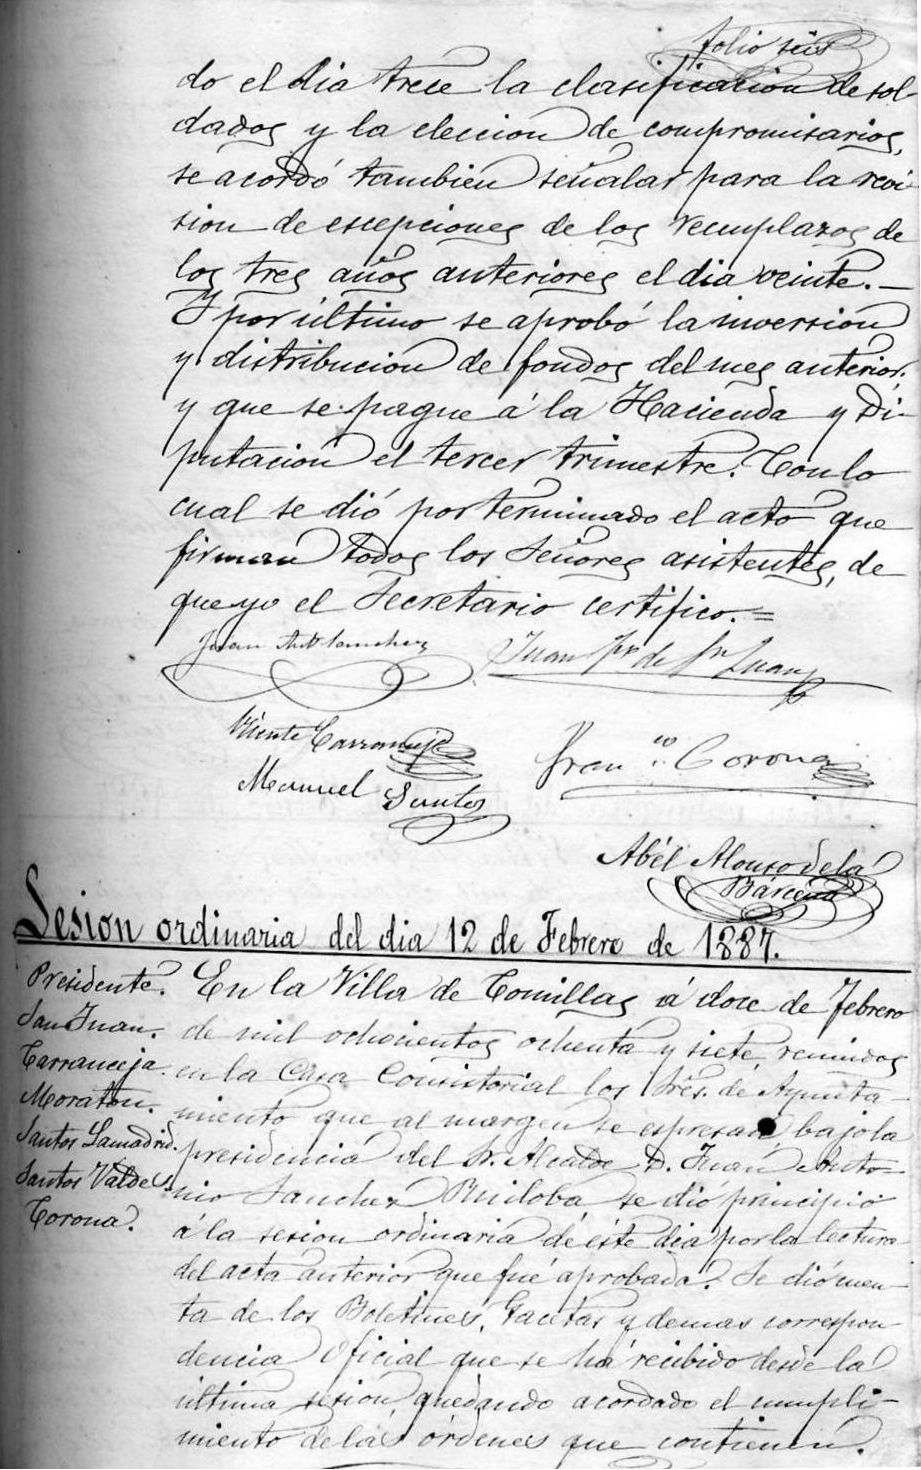 folio seis
do el dia trece la clasificacion de sol-
dados y la eleccion de compromisarios,
se acordó tambien señalar para la revi-
sion de escepciones de los reemplazos de
los tres años anteriores el dia veinte.—
Y por último se aprobó la inversion
y distribucion de fondos del mes anterior.
y que se pague á la Hacienda y Di-
putacion el tercer trimestre. Con lo
cual se dió por terminado el acto que
firman todos los Señores asistentes, de
que yo el Secretario certifico.=
Juan Ant Sanchez
Juan de Sn Juan
Vicente Carranceja
Franco. Corona
Manuel Santos
Abél Alonso de la
Bárcena
Sesion ordinaria del dia 12 de Febrero de 1887.
Presidente.
San Juan.
Carranceja.
Moraton.
Santos Lamadrid.
Santos Valdes
Corona.
En la Villa de Comillas á doce de Febrero
de mil ochocientos ochenta y siete, reunidos
en la Casa Consistorial los Sres. de Ayunta-
miento que al margen se espresan, bajo la
presidencia del Sr. Alcalde D. Juan Anto-
nio Sanchez Ruiloba, se dió principio
á la sesion ordinaria de éste dia por la lectura
del acta anterior que fué aprobada. Se dió cuen-
ta de los Boletines, Gacetas y demas correspon-
dencia Oficial que se há recibido desde la
última sesion, quedando acordado el cumpli-
miento de las órdenes que contienen.